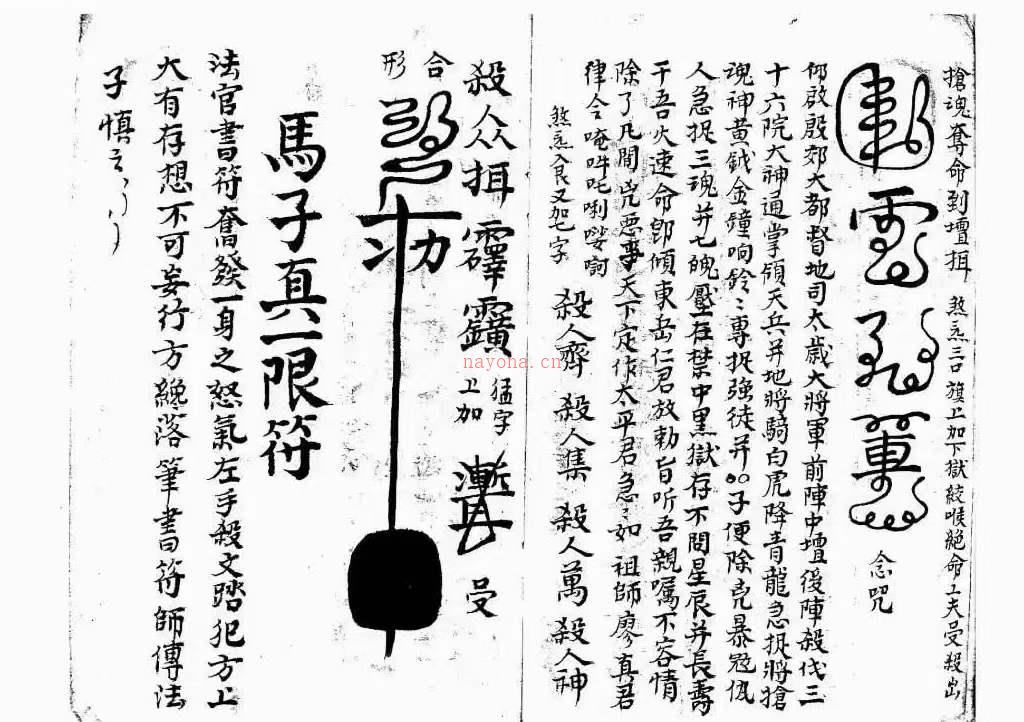 搶魂奪命到壇揖 煞炁三口 旗上加下獄絞喉絕命工夫
念咒
仰啟殷郊大都督地司太歲大將軍前陣中壇後陣殺伐三
十六院大神通掌領天兵并地將騎白虎降青龍急捉將搶
魂神黃鉞金鐘响鈴〻專捉強徒并○○子便除兇暴冠
人急捉三魂并七魄壓在禁中黑獄存不問星辰并長壽
干吾火速命即傾東岳仁君放勅旨听吾親嘱不容情
除了凡間兇惡事天下定作太平君急〻如祖師廖真君
律令唵吽吒唎
煞炁又加七字
殺人齊 殺人集 殺人萬 殺人神
殺人 揖霹 猛字上加
合形
馬子真一限符
法官書符奮發一身之怒氣左手殺文踏犯方上
大有存想不可妄行方纔落筆書符師傳法
子慎之
nayona.cn